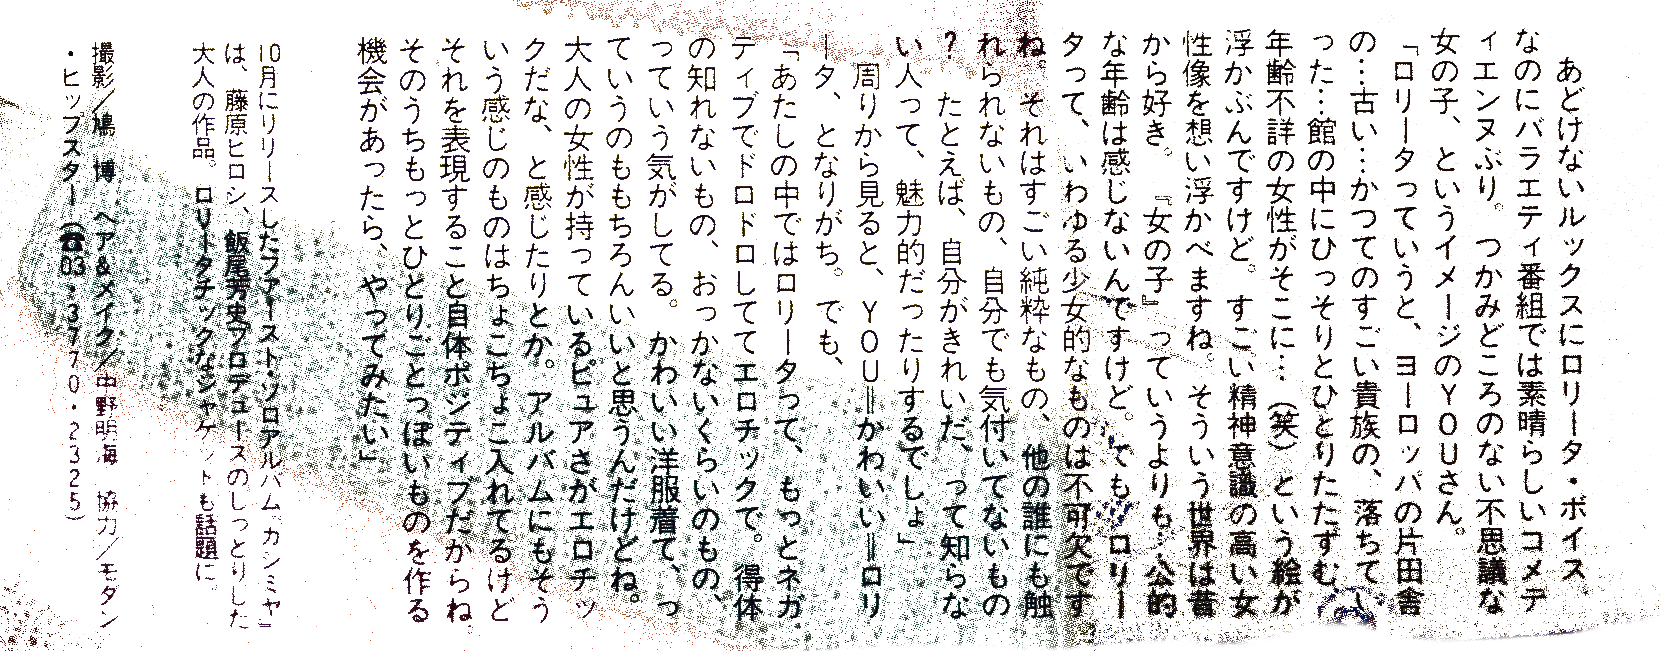 あどけないルックスにロリータ・ボイス
なのにバラエティ番組では素晴らしいコメデ
ィエンヌぶり。つかみどころのない不思議な
女の子、というイメージのYOUさん。
「ロリータっていうと、ヨーロッパの片田舎
の…古い…かつてのすごい貴族の、落ちて
った…館の中にひっそりとひとりたたずむ、
年齢不詳の女性がそこに…（笑）という絵が
浮かぶんですけど。すごい精神意識の高い女
性像を想い浮かべますね。そういう世界は昔
から好き。『女の子』っていうよりも…公的
な年齢は感じないんですけど。でもロリー
タって、いわゆる少女的なものは不可欠です
ね。それはすごい純粋なもの、他の誰にも触
れられないもの、自分でも気付いてないもの
？　たとえば、自分がきれいだ、って知らな
い人って、魅力的だったりするでしょ」
　周りから見ると、YOU＝かわいい＝ロリ
ータ、となりがち。でも、
「あたしの中ではロリータって、もっとネガ
ティブでドロドロしててエロチックで。得体
の知れないもの、おっかないくらいのもの、
っていう気がしてる。かわいい洋服着て、っ
ていうのももちろんいいと思うんだけどね。
大人の女性が持っているピュアさがエロチッ
クだな、と感じたりとか。アルバムにもそう
いう感じのものはちょこちょこ入れてるけど
それを表現すること自体ポジティブだからね
そのうちもっとひとりごとっぽいものを作る
機会があったら、やってみたい」
10月にリリースしたファースト・ソロアルバム「カシミヤ」
は、藤原ヒロシ、飯尾芳史プロデュースのしっとりした
大人の作品。ロリータチックなジャケットも話題に
撮影／鳩　博　ヘア＆メイク／中野明海　協力／モダン
・ヒップスター（☎03・3770・2325）